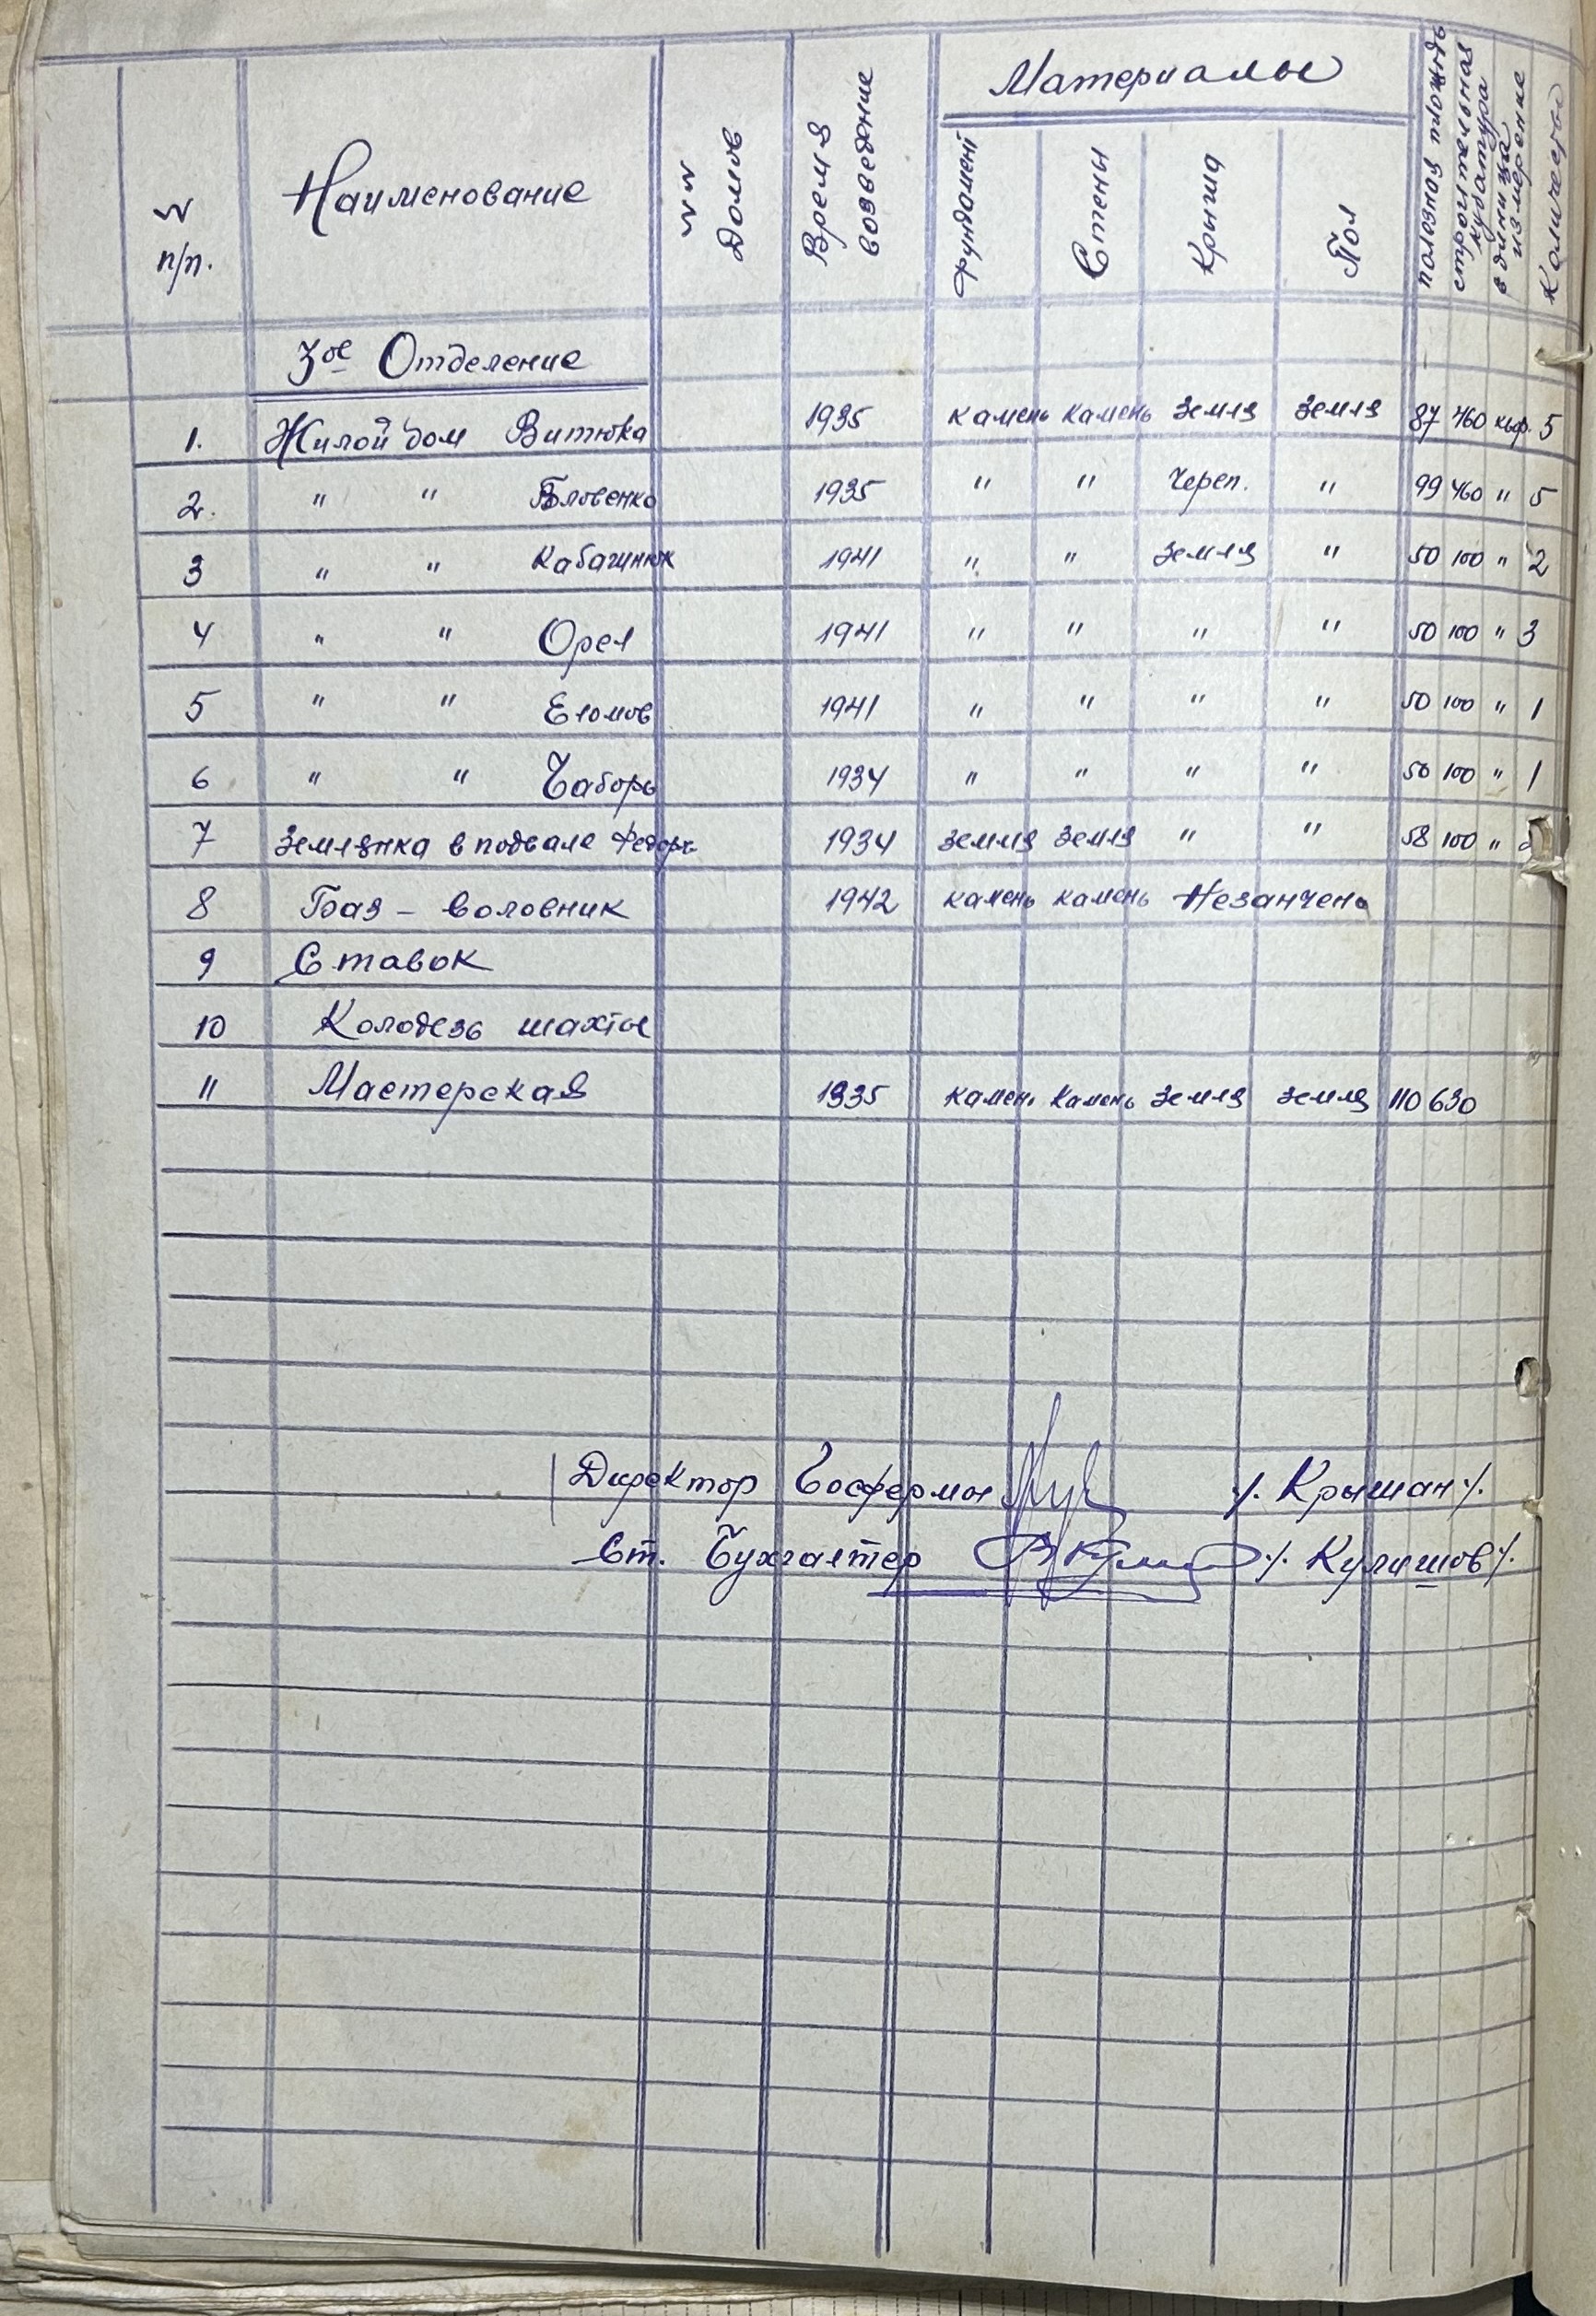 № п/п. Наименование №№ Домов Время возведение Материалы Фундамент Стены Крыша Пол полезная площадь строительная кубатура единица измерение Количество
3ое Отделение
1. Жилой дом Витюка 1935 камень камень земля земля 87 460 5
2. " " 1935 " " Череп. " 99 460 " 5
3 " " Кабачинюк 1941 " " земля " 50 100 " 2
4 " " Орел 1941 " " " " 50 100 " 3
5 " " 1941 " " " " 50 100 " 1
6 " " 1934 " " " " 50 100 " 1
7 Землянка в подвале 1934 земля земля " " 58 100 "
8 Баз - воловник 1942 камень камень Незанчено
9 Ставок
10 Колодезь шахты
11 Мастерская 1935 камень камень земля земля 110 630
Директор Госфермы /. Крышан /.
Ст. Бухгалтер /. Кулишов /.